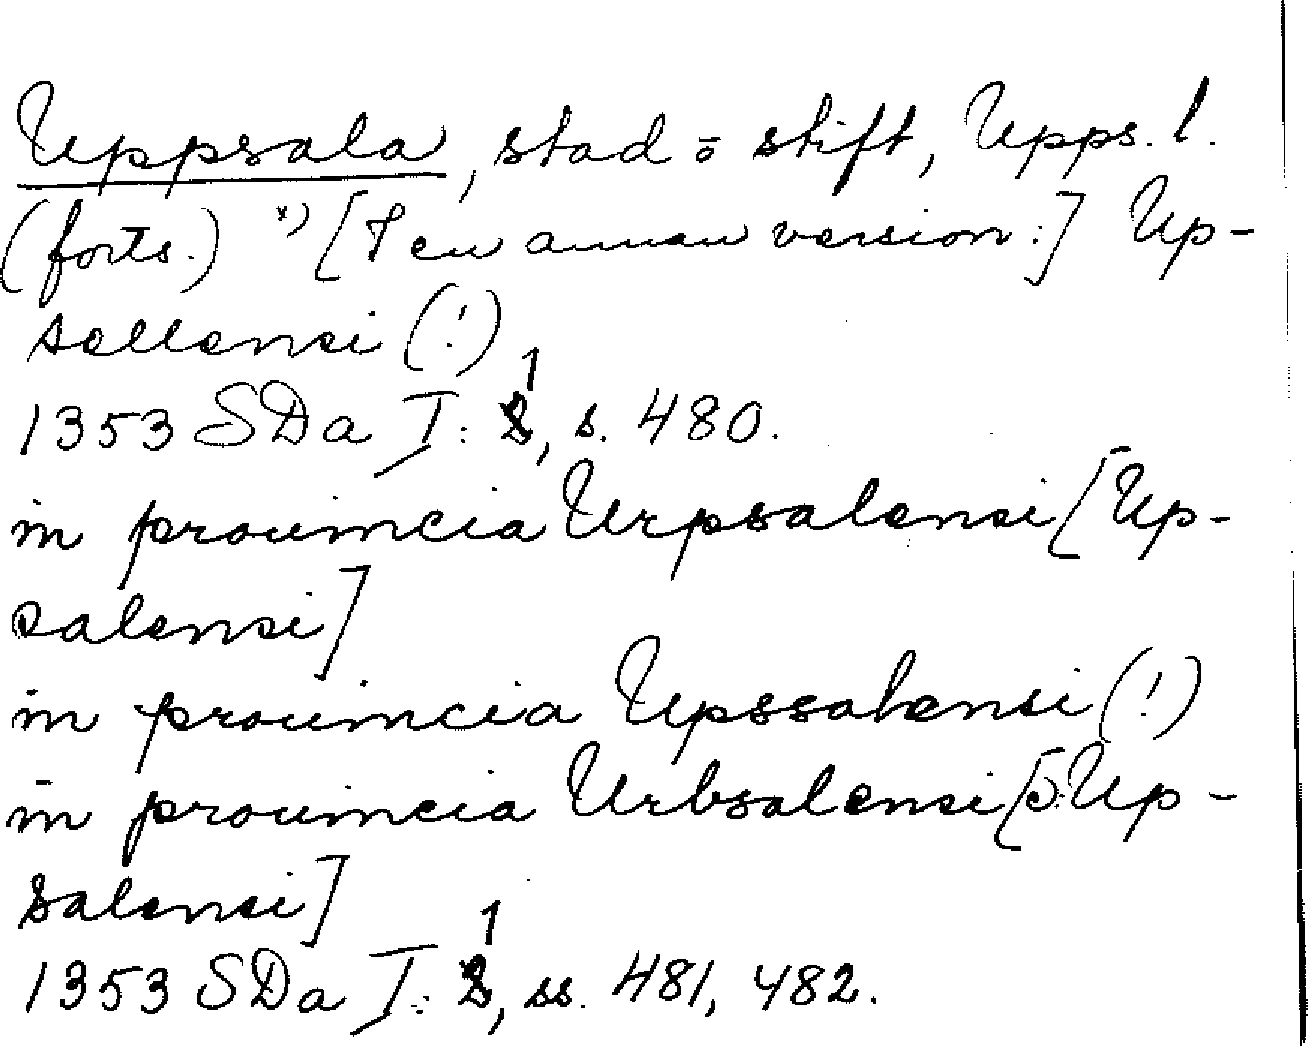 Uppsala, stad o stift, Upps. l.
(forts.) x) [I en annan version:] Up-
sellensi (!)
1353 SDa I: 1, s. 480.
in prouincia Urpsalensi [Up-
salensi]
in prouincia Upssalensi (!)
in prouincia Urbsalensi [o: Up-
salensi]
1353 SDa I: 1, ss. 481, 482.